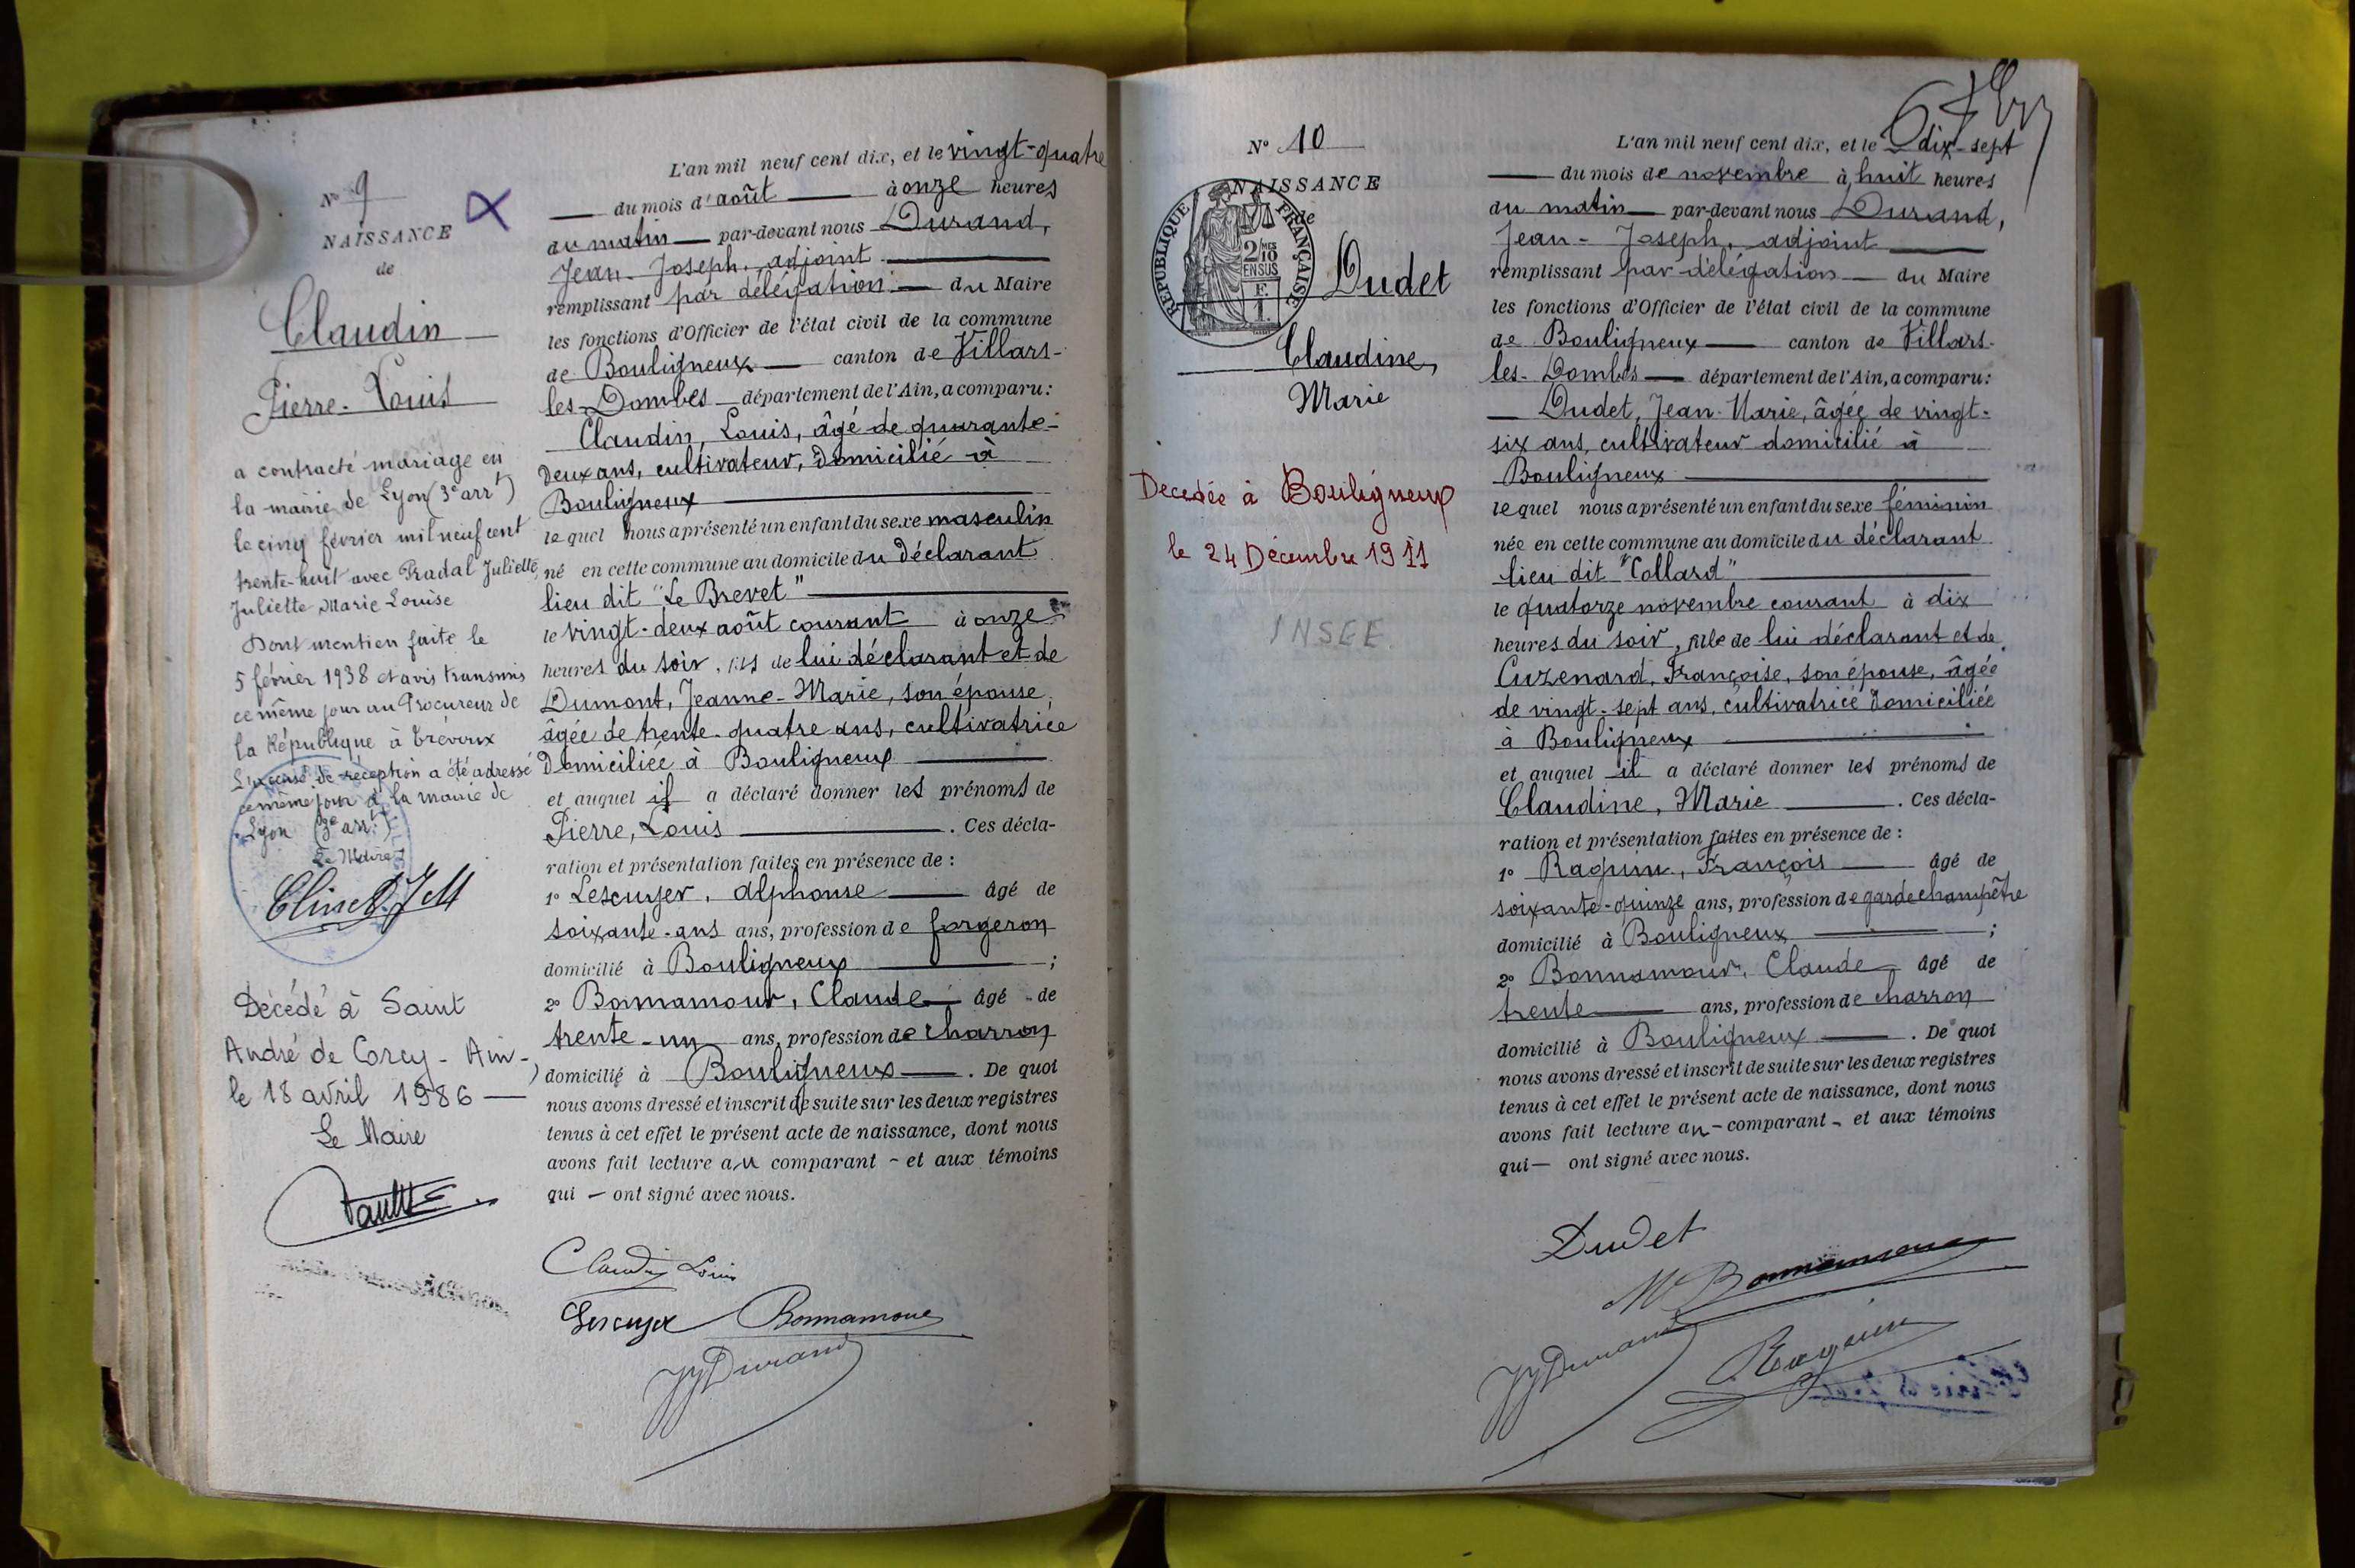 N° 9
NAISSANCE
de
Claudin
Pierre-Louis
a contracté mariage en
la mairie de Lyon (3e arrt)
le cinq février mil neuf cent
trente-huit avec Pradal Juliette,
Juliette Marie Louise
Dont mention faite le
5 février 1938 et avis transmis
ce même jour au Procureur de
la République à Trévoux
L'accusé de réception a été adressé
ce même jour à la mairie de
Lyon (3e arrt)
Le Maire
Décédé à Saint
André de Corcy - Ain -
le 18 avril 1986
Le Maire
L'an mil neuf cent dix, et le vingt-quatre
du mois d'août à onze heures
du matin par-devant nous Durand,
Jean-Joseph, adjoint
remplissant par délégation du Maire
les fonctions d'Officier de l'état civil de la commune
de Bouligneux canton de Villars-
les-Dombes département de l'Ain, a comparu:
Claudin, Louis, âgé de quarante-
deux ans, cultivateur, domicilié à
Bouligneux
lequel nous a présenté un enfant du sexe masculin
né en cette commune au domicile du déclarant
lieu dit "Le Brevet"
le vingt-deux août courant à onze
heures du soir, fils de lui déclarant et de
Dumont, Jeanne-Marie, son épouse,
âgée de trente-quatre ans, cultivatrice
domiciliée à Bouligneux
et auquel il a déclaré donner les prénoms de
Pierre, Louis . Ces décla-
ration et présentation faites en présence de :
1° Lescuyer, Alphonse âgé de
soixante-ans ans, profession de forgeron
domicilié à Bouligneux ;
2° Bonnamour, Claude âgé de
trente-un ans, profession de charron
domicilié à Bouligneux . De quoi
nous avons dressé et inscrit de suite sur les deux registres
tenus à cet effet le présent acte de naissance, dont nous
avons fait lecture au comparant - et aux témoins
qui - ont signé avec nous.
Claudin Louis
Lescuyer Bonnamour
JJ Durand
N° 10
NAISSANCE
de
RÉPUBLIQUE FRANÇAISE
2/10 MES
EN SUS
Dudet
Claudine,
Marie
Decedée à Bouligneux
le 24 Décembre 1911
INSEE
L'an mil neuf cent dix, et le dix-sept
du mois de novembre à huit heures
du matin par-devant nous Durand,
Jean-Joseph, adjoint
remplissant par délégation du Maire
les fonctions d'Officier de l'état civil de la commune
de Bouligneux canton de Villars-
les-Dombes département de l'Ain, a comparu:
Dudet, Jean-Marie, âgée de vingt-
six ans, cultivateur domicilié à
Bouligneux
lequel nous a présenté un enfant du sexe féminin
née en cette commune au domicile du déclarant
lieu dit "Collard"
le quatorze novembre courant à dix
heures du soir, fille de lui déclarant et de
Cuzenard, Françoise, son épouse, âgée
de vingt-sept ans, cultivatrice domiciliée
à Bouligneux
et auquel il a déclaré donner les prénoms de
Claudine, Marie . Ces décla-
ration et présentation faites en présence de :
1° Raguin, François âgé de
soixante-quinze ans, profession de garde champêtre
domicilié à Bouligneux ;
2° Bonnamour, Claude âgé de
trente ans, profession de charron
domicilié à Bouligneux . De quoi
nous avons dressé et inscrit de suite sur les deux registres
tenus à cet effet le présent acte de naissance, dont nous
avons fait lecture au - comparant - et aux témoins
qui - ont signé avec nous.
Dudet
Bonnamour
JJ Durand
Raguin